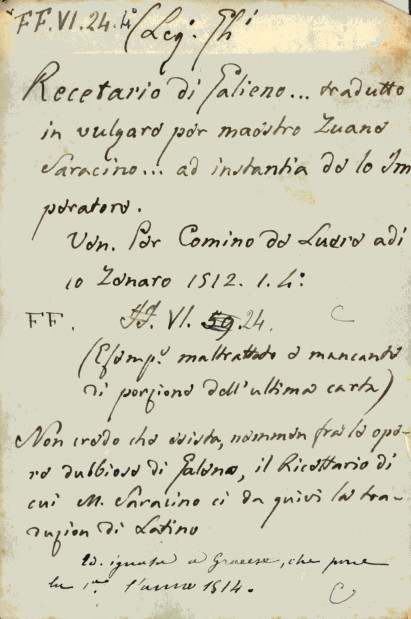 FF.VI.24.4° (Leg. Fh.
Recetario di Galieno... tradutto
in vulgare per maestro Zuane
Saracino... ad instantia de lo Im
peratore.
Ven. Per Comino da Luere adi
10 Zenaro 1512. 1. 4°:
FF. FF. VI. 59. 24.
(Esemp.e maltrattato e mancante
di porzione dell'ultima carta)
Non credo che esista, nemmen fra le ope-
re dubbiose di Galeno, il Ricettario di
cui M. Saracino ci da quivi la tra-
duzion di Latino
Ed. ignota a Graesse, che pone
la 1.a l'anno 1514.